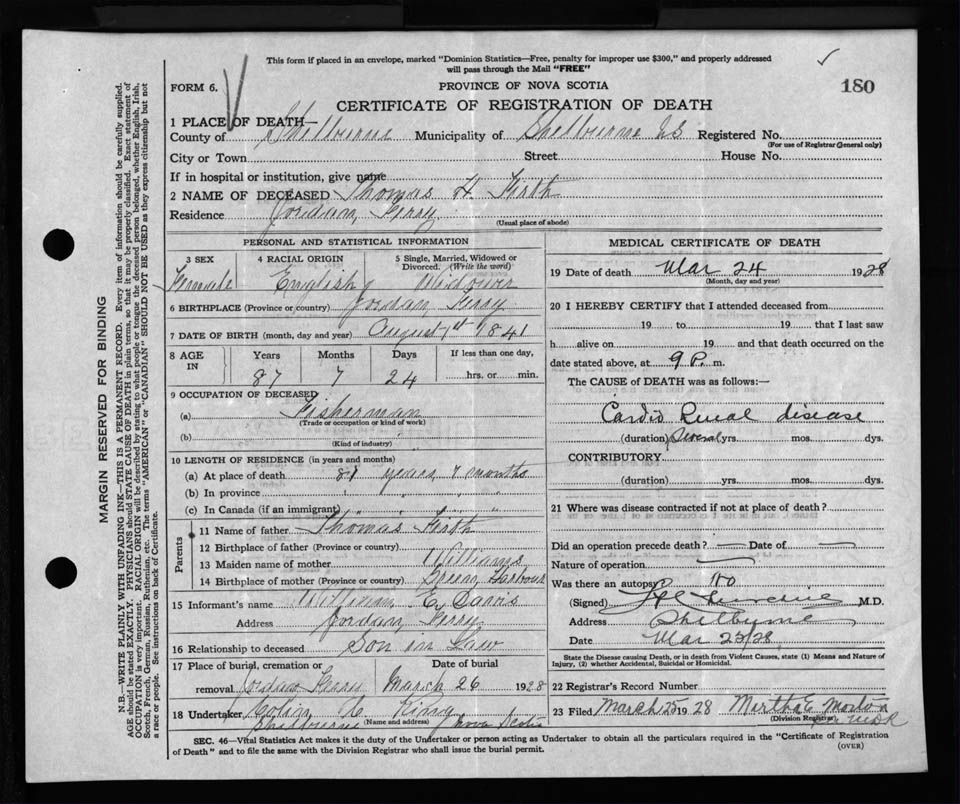 This form if placed in an envelope, marked "Dominion Statistics—Free, penalty for improper use $300," and properly addressed
will pass through the Mail "FREE"
FORM 6.
PROVINCE OF NOVA SCOTIA
180
CERTIFICATE OF REGISTRATION OF DEATH
1 PLACE OF DEATH—
County of Shelburne Municipality of Shelburne Registered No.
(For use of Registrar General only)
City or Town Street House No.
If in hospital or institution, give name
2 NAME OF DECEASED Thomas H. Firth
Residence Jordan Ferry
(Usual place of abode)
PERSONAL AND STATISTICAL INFORMATION
3 SEX 4 RACIAL ORIGIN 5 Single, Married, Widowed or
Divorced. (Write the word)
English Widower
6 BIRTHPLACE (Province or country) Jordan Ferry
7 DATE OF BIRTH (month, day and year) August 1st 1841
8 AGE IN Years Months Days If less than one day,
87 7 24 hrs. or min.
9 OCCUPATION OF DECEASED
(a) Fisherman
(Trade or occupation or kind of work)
(b)
(Kind of industry)
10 LENGTH OF RESIDENCE (in years and months)
(a) At place of death 87 years 7 months
(b) In province " " " "
(c) In Canada (if an immigrant) " " " "
Parents
11 Name of father Thomas Firth
12 Birthplace of father (Province or country)
13 Maiden name of mother Williams
14 Birthplace of mother (Province or country) Green Harbour
15 Informant's name William E. Davis
Address Jordan Ferry
16 Relationship to deceased Son in Law
17 Place of burial, cremation or Date of burial
removal Jordan Ferry March 26 1928
18 Undertaker Colin King
Shelburne (Name and address) Nova Scotia
MEDICAL CERTIFICATE OF DEATH
19 Date of death Mar 24 1928
(Month, day and year)
20 I HEREBY CERTIFY that I attended deceased from
19 to 19 that I last saw
h alive on 19 and that death occurred on the
date stated above, at 9 P. m.
The CAUSE of DEATH was as follows:—
Cardio Renal disease
(duration) Several yrs. mos. dys.
CONTRIBUTORY
(duration) yrs. mos. dys.
21 Where was disease contracted if not at place of death?
Did an operation precede death? — Date of —
Nature of operation —
Was there an autopsy no
(Signed) M.D.
Address Shelburne
Date Mar 25/28
State the Disease causing Death, or in Death from Violent Causes, state (1) Means and Nature of
Injury, (2) whether Accidental, Suicidal or Homicidal.
22 Registrar's Record Number
23 Filed March 25 1928 Martha E. Morton
(Division Registrar)
SEC. 46—Vital Statistics Act makes it the duty of the Undertaker or person acting as Undertaker to obtain all the particulars required in the "Certificate of Registration
of Death" and to file the same with the Division Registrar who shall issue the burial permit.
(OVER)
MARGIN RESERVED FOR BINDING
N.B.—WRITE PLAINLY WITH UNFADING INK—THIS IS A PERMANENT RECORD. Every item of information should be carefully supplied.
AGE should be stated EXACTLY. PHYSICIANS should STATE CAUSE OF DEATH in plain terms, so that it may be properly classified. Exact statement of
OCCUPATION is very important. RACIAL ORIGIN will be described by stating to what people or tongue the deceased person belonged, whether English, Irish,
Scotch, French, German, Russian, Ruthenian, etc. The terms "AMERICAN" or "CANADIAN" SHOULD NOT BE USED as they express citizenship but not
a race or people. See instructions on back of Certificate.